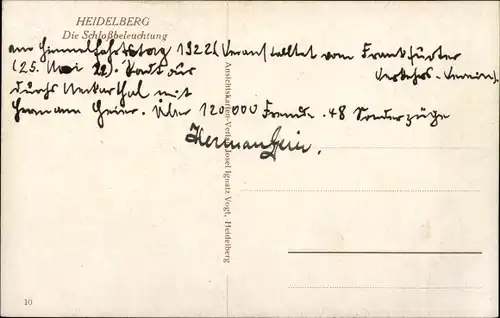 HEIDELBERG
Die Schloßbeleuchtung
am Himmelfahrtstag 1922 (Veranstaltet vom Frankfurter
(25. Mai 22). Verkehrs-Verein).
durchs Neckarthal mit
Hermann Geier. Über 120000 Fremde. 48 Sonderzüge
Herman Geier.
Ansichtskarten-Verlag Josef Ignatz Vogt, Heidelberg
10